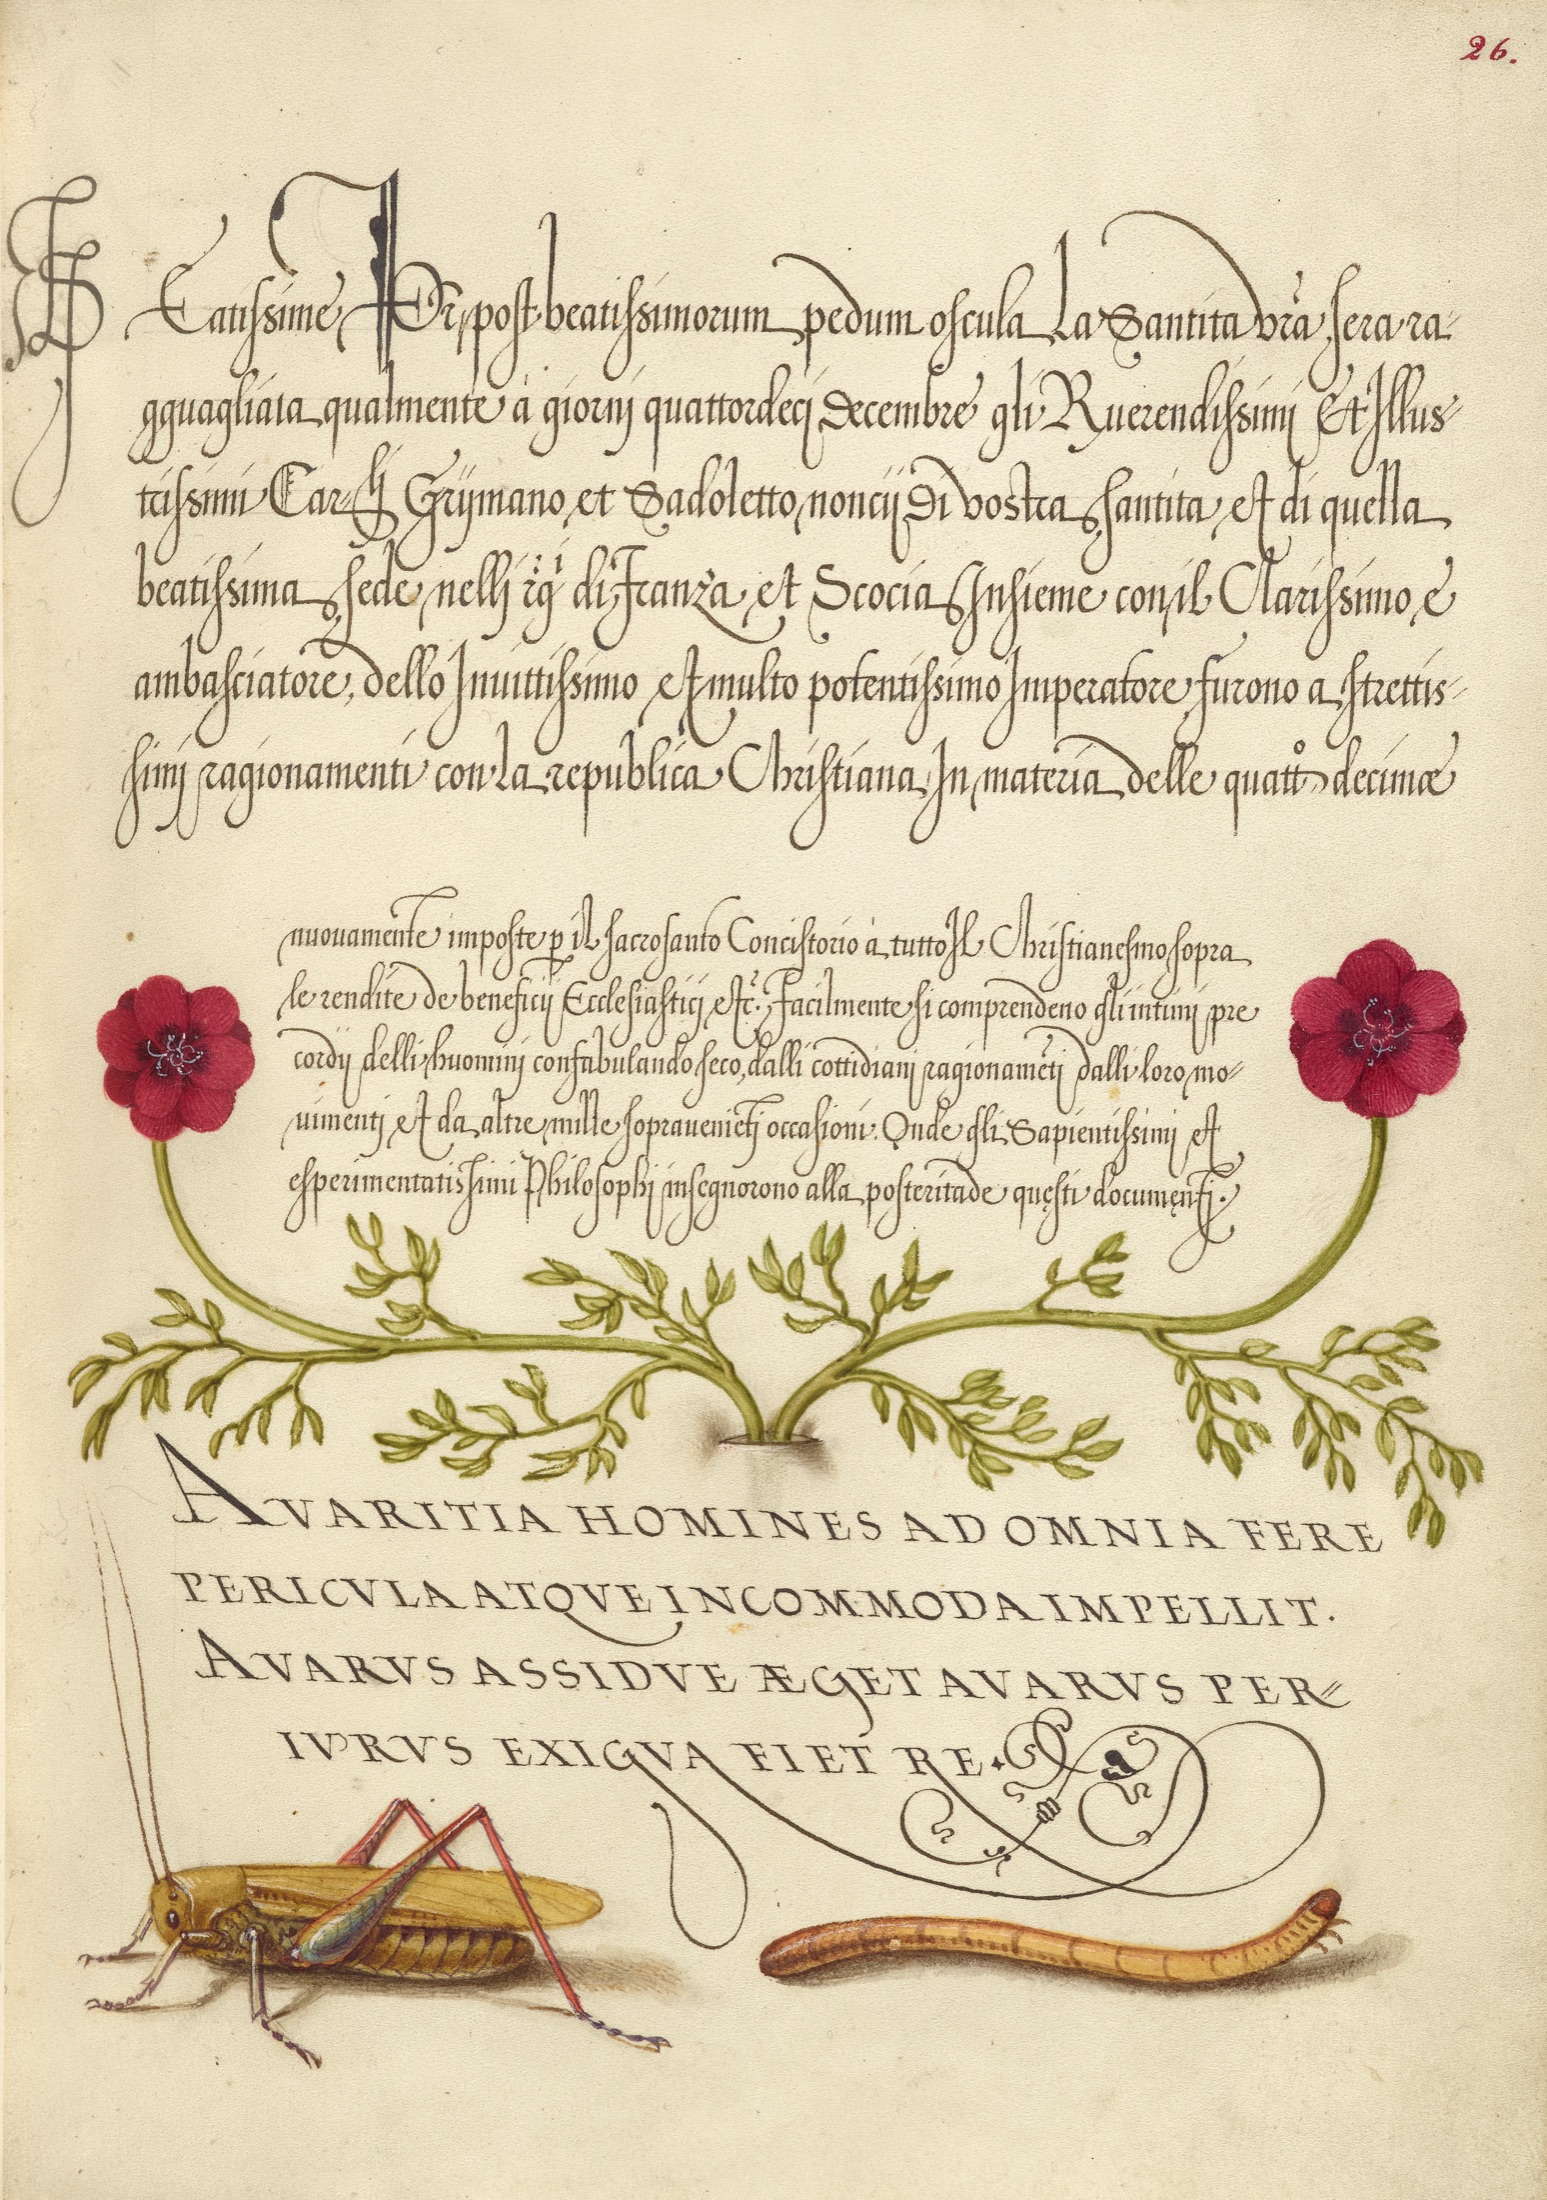 26.
BEatissime Pr, post beatissimorum pedum oscula La Santita vra sera ra-
gguagliata qualmente à giorni quattordeci Decembre gli Ruerendissimi Et Illus-
trissimi Car-li Grymano et Sadoletto noncij Di vostra santita et di quella
beatissima sede nelli di Franza et Scocia Insieme con il Clarissimo e
ambasciatore dello Inuittissimo et multo potentissimo Imperatore furono a strettis-
simi ragionamenti con la republica Christiana In materia delle quatto decimæ
nuouamente imposte p il sacrosanto Concistorio à tutto Il Christianesmo sopra
le rendite de beneficij Ecclesiastici etc. Facilmente si comprendeno gli intimi pre
cordij delli huomini confabulando seco, dalli cottidiani ragionamēti dalli loro mo-
uimenti et da altre mille soprauenieti occasioni. Onde gli Sapientissimi et
esperimentatissimi Philosophi insegnorono alla posteritade questi documenti.
AVARITIA HOMINES AD OMNIA FERE
PERICVLA ATQVE INCOMMODA IMPELLIT.
AVARVS ASSIDVE ÆGET AVARVS PER-
IVRVS EXIGVA FIET RE.